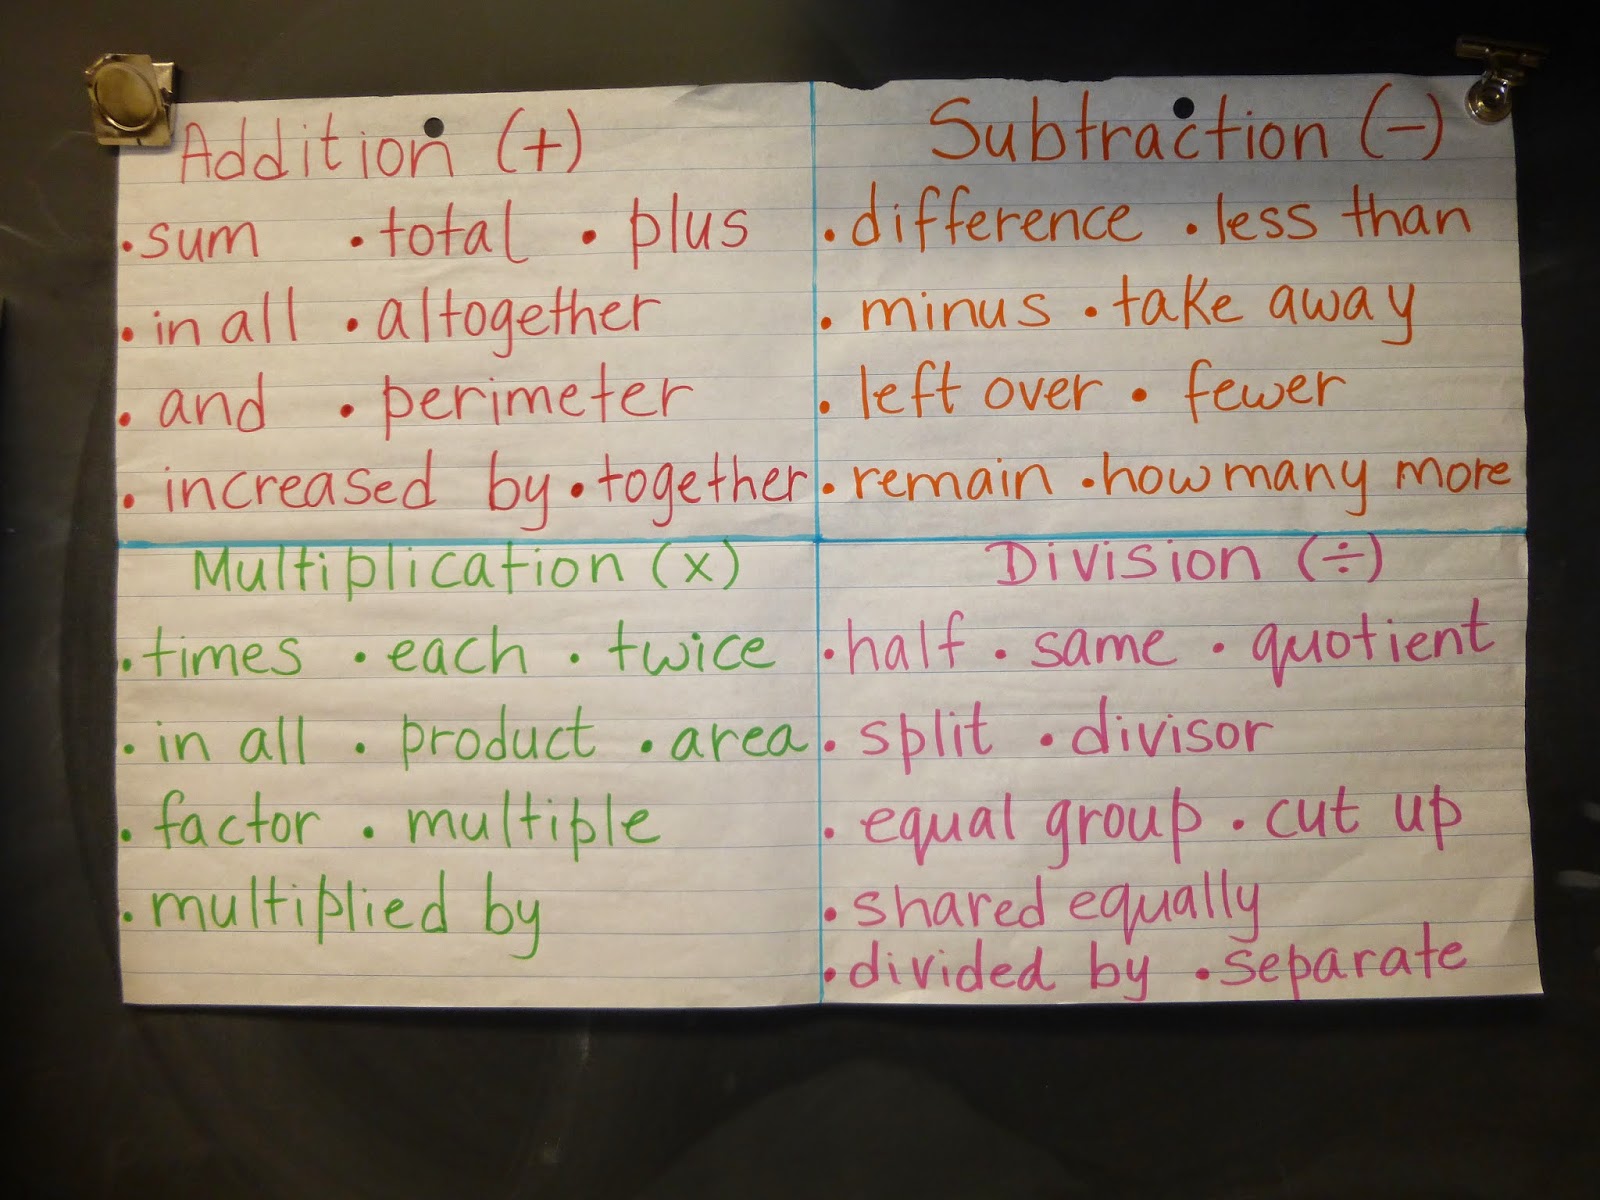 Addition (+)
•sum •total •plus
•in all •altogether
•and •perimeter
•increased by •together
Subtraction (−)
•difference •less than
•minus •take away
•left over •fewer
•remain •how many more
Multiplication (x)
•times •each •twice
•in all •product •area
•factor •multiple
•multiplied by
Division (÷)
•half •same •quotient
•split •divisor
•equal group •cut up
•shared equally
•divided by •separate